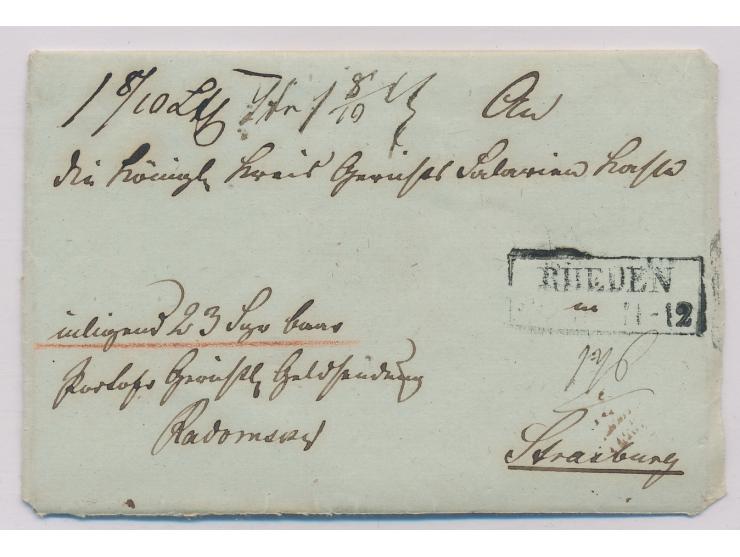 1 8/10 Lth An
die Königl Kreis Gerichts Salarien Kasse
RHEDEN
11-12
inligend 23 Sgr baar
portofr Gerichtl Geldsendung
Radomski
Strasburg